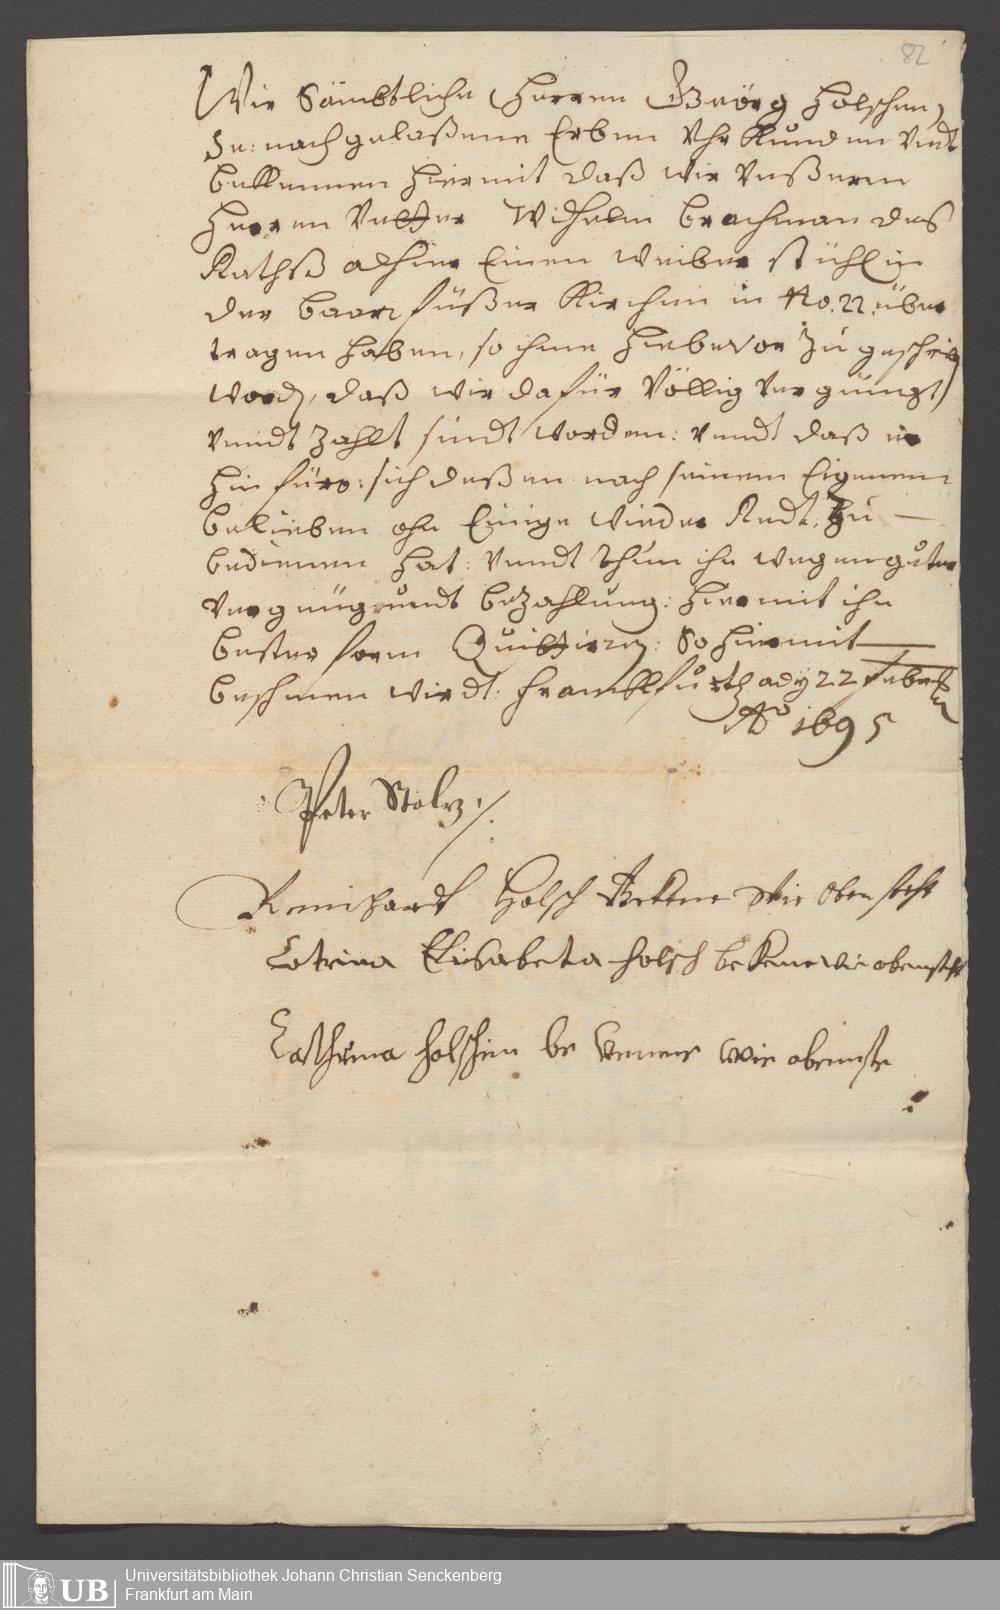 82
Wir Sämbtliche Herren Geörg Holschen
Se: nachgelaßene Erben Uhrkunden Undt
bekennen hiermit daß wir Unßerm
Herren Vetter Wilhelm Brachman des
Rathß alhier Einen weiber stuhl in
der baarfüßer Kirchen in No. 22. über
tragen haben, so ihme hiebevor zu geschrieb
word, daß wir dafür Völlig Vergnügt
Vundt Zahlt sindt worden: Vundt daß er
hinfüro: sich deßen nach seinem Eigenem
belieben ohn Einige Wieder Redt, zu —
bedienen hat: Vundt thun ihn wegen guter
Vergnügundt bezahlung: hiermit ihn
bester form Quittiren: So hiermit —
beschehen wirdt: Franckfurth ady 22 Febr
Ao 1695
Peter Stolz
Reinhardt Holsch Bekene Wie Oben steht
Catrina Elisabeta holsch bekene wie obensteht
Catharina holschin be kenne wie obenste
UB
Universitätsbibliothek Johann Christian Senckenberg
Frankfurt am Main